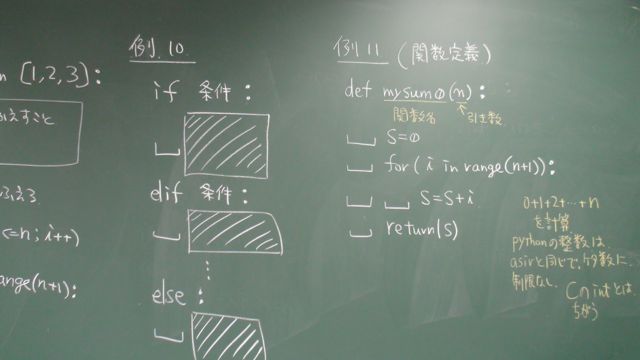 n [1,2,3]:
ふえすこと
ふえる
<=n; i++)
ange(n+1):
例.10
if 条件:
elif 条件:
⋮
else:
例11 (関数定義)
def mysum0(n):
関数名 引き数
S=0
for(i in range(n+1)):
S=S+i
return(S)
0+1+2+…+n
を計算
pythonの整数は、
asirと同じで、ケタ数に
制限なし。
Cのintとは
ちがう